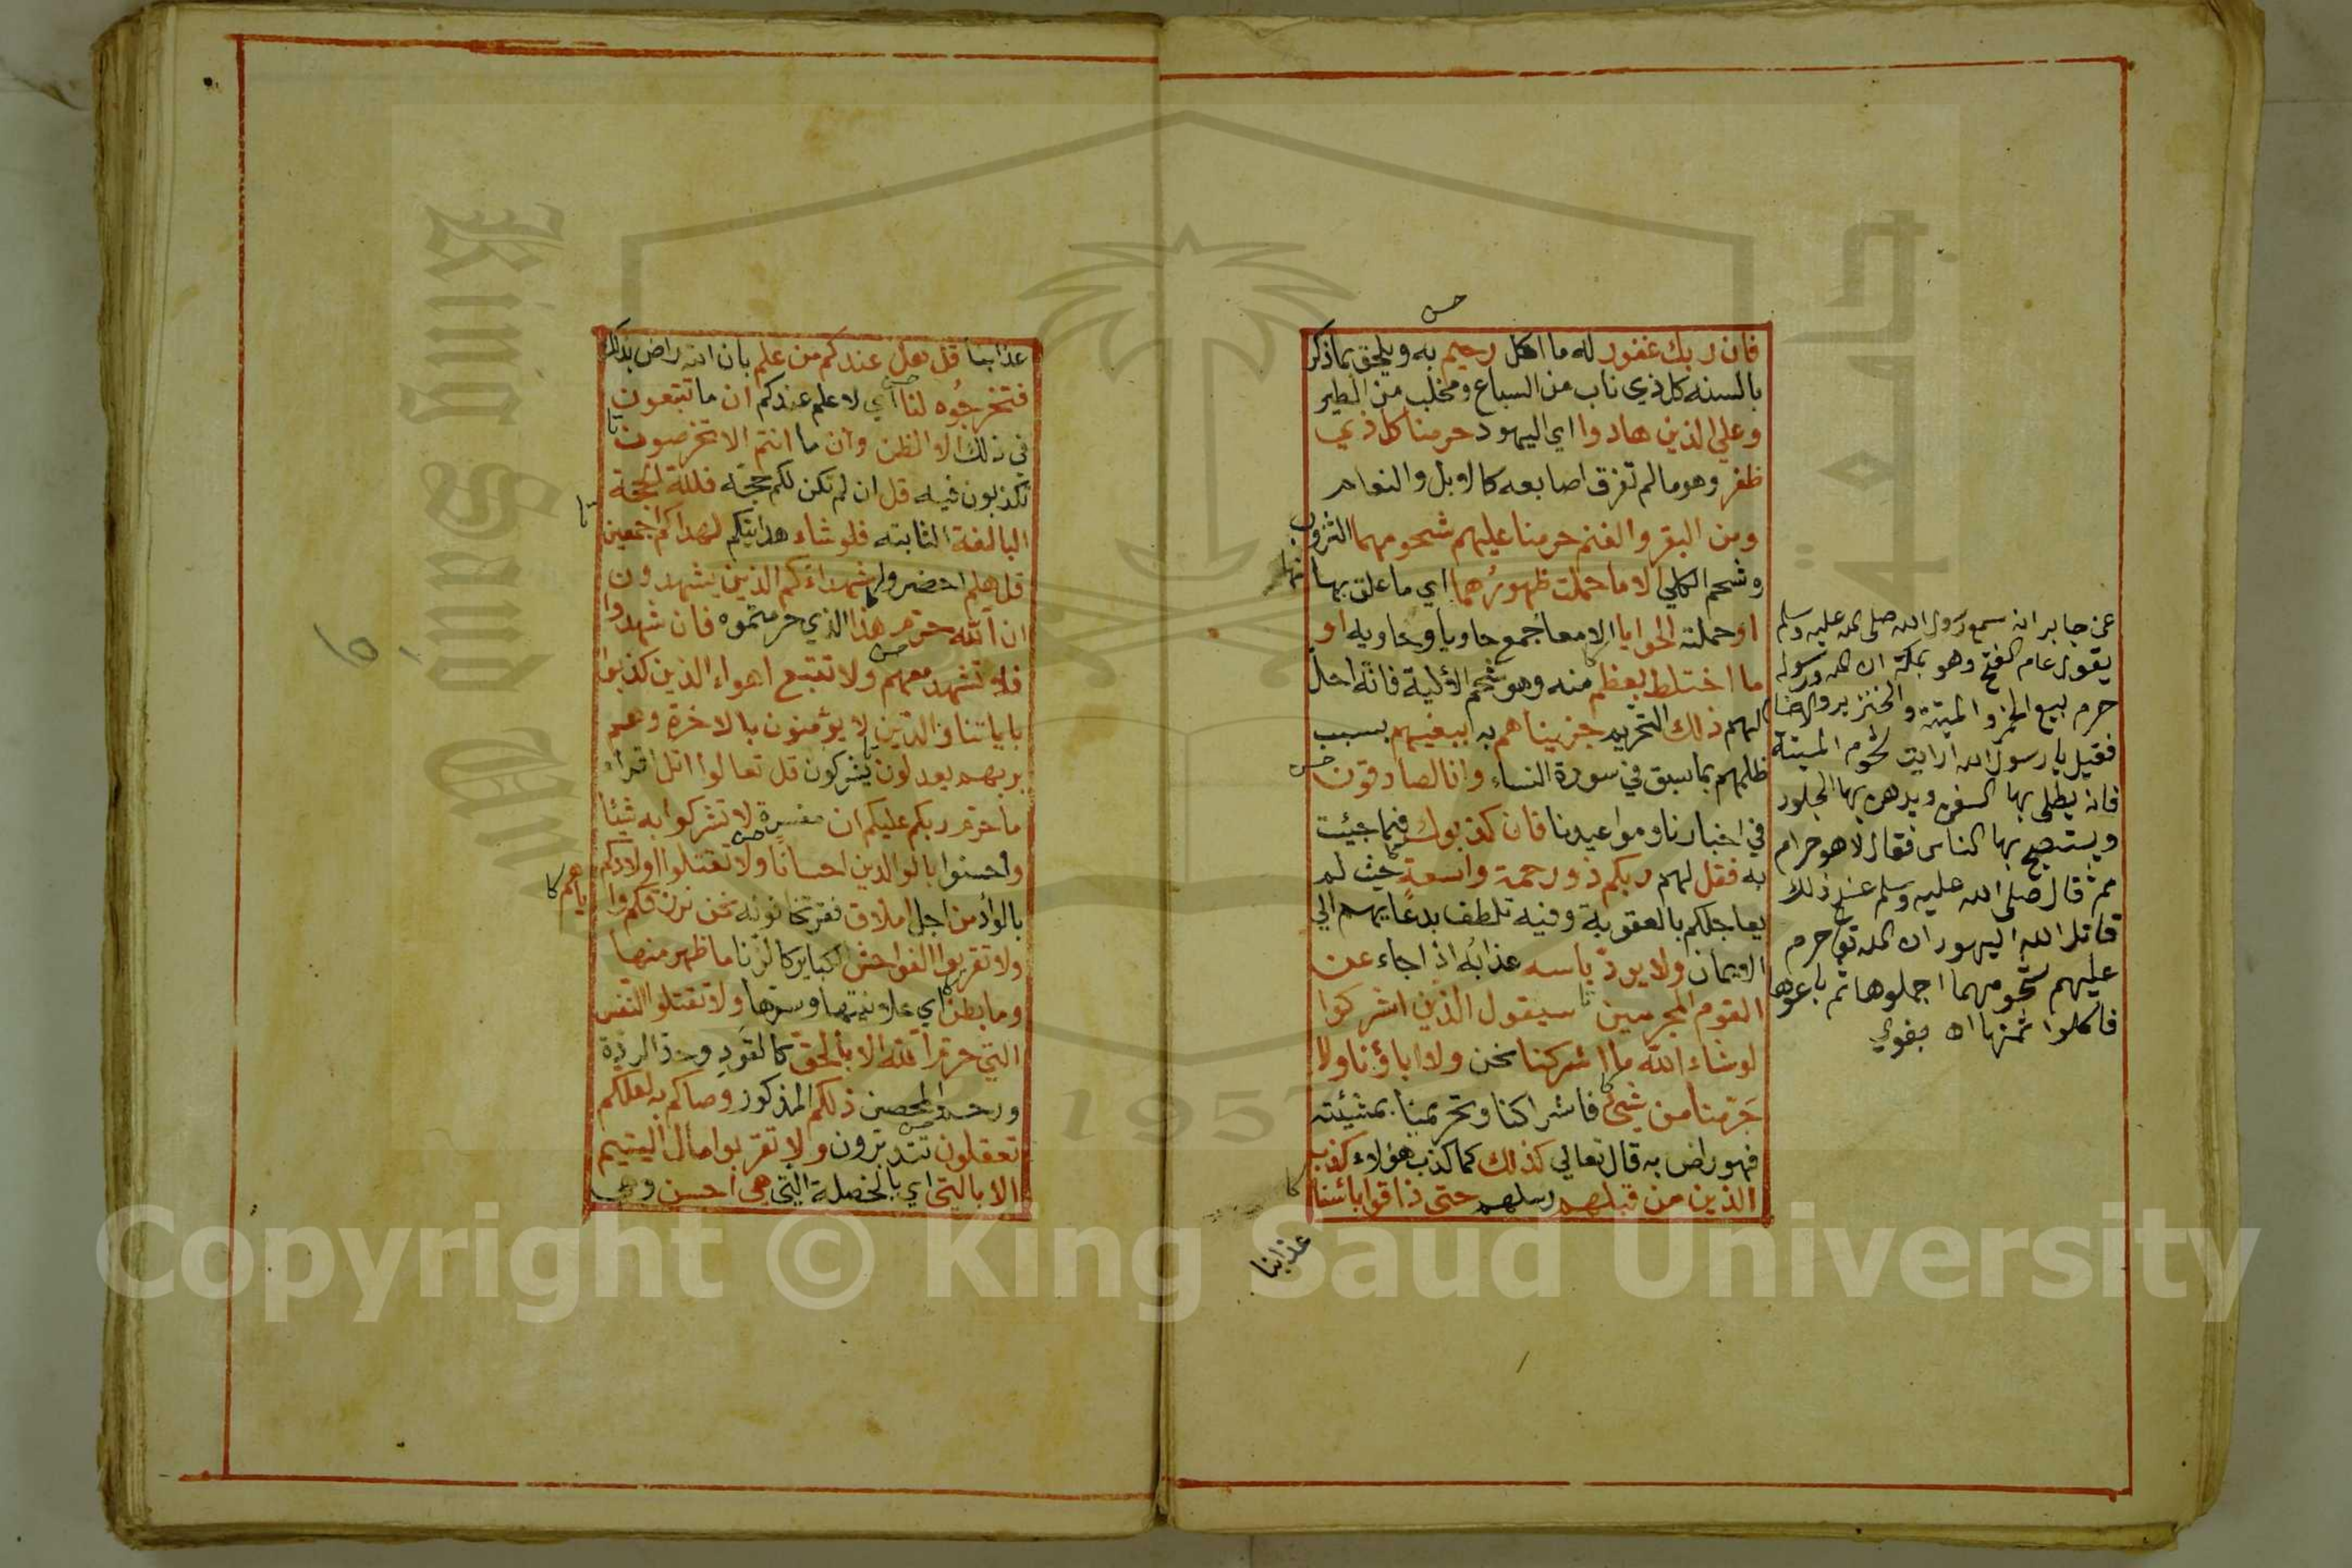 فان ربك غفور له ما اكل رحيم به ويلحق بما ذكر
بالسنه كل ذي ناب من السباع ومخلب من الطير
وعلي الذين هادوا اي اليهود حرمنا كل ذي
ظفر وهو ما لم تفرق اصابعه كالابل والنعام
ومن البقر والغنم حرمنا عليهم شحومهما الثروب
وشحم الكلي الا ما حملت ظهورهما اي ما علق بها منها
او حملته الحوايا الامعا جمع حاويا وحاويه او
ما اختلط بعظم منه وهو شحم الألية فانه احل
لهم ذلك التحريم جزيناهم به ببغيهم بسبب
ظلمهم بما سبق في سورة النساء وانا لصادقون
في اخبارنا ومواعيدنا فان كذبوك فيما جيئت
به فقل لهم ربكم ذو رحمة واسعة حيث لم
يعاجلكم بالعقوبة وفيه تلطف بدعايهم الي
الايمان ولا يرد باسه عذابه اذا جاء عن
القوم المجرمين سيقول الذين اشركوا
لو شاء الله ما اشركنا نحن ولا اباؤنا ولا
حرمنا من شيئ فاشراكنا وتحريمنا بمشيئته
فهو راض به قال تعالي كذلك كما كذب هؤلاء كذب
الذين من قبلهم رسلهم حتى ذاقوا بائسنا
عذابنا
عن جابر انه سمع رسول الله صلى الله عليه وسلم
يقول عام الفتح وهو بمكة ان الله ورسوله
حرم بيع الخمر والميتة والخنزير والاصنا
فقيل يا رسول الله ارايت شحوم الميتة
فانه يطلى بها السفن ويدهن بها الجلود
ويستصبح بها الناس فقال لا هو حرام
ثم قال صلى الله عليه وسلم عند ذلك
قاتل الله اليهود ان الله تعا حرم
عليهم شحومهما اجملوها ثم باعوها
فاكلوا ثمنها اه بغوي
عذابنا قل هل عندكم من علم بان الله راض بذلك
فتخرجوه لنا اي لا علم عندكم ان ما تتبعون
في ذلك الا الظن وان ما انتم الا تخرصون
تكذبون فيه قل ان لم تكن لكم حجة فلله الحجة
البالغة الثابته فلو شاء هدايتكم لهداكم اجمعين
قل هلم احضروا شهداءكم الذين يشهدون
ان الله حرم هذا الذي حرمتموه فان شهدوا
فلا تشهد معهم ولا تتبع اهواء الذين كذبوا
باياتنا والذين لا يؤمنون بالاخرة وهم
بربهم يعدلون يشركون قل تعالوا اتل اقراء
ما حرم ربكم عليكم ان مفسرة لا تشركوا به شيئا
واحسنوا بالوالدين احسانا ولا تقتلوا اولادكم
بالواد من اجل املاق فقر تخافونه نحن نرزقكم وا ياهم
ولا تقربوا الفواحش الكباير كالزنا ما ظهر منها
وما بطن اي علانيتها وسرها ولا تقتلوا النفس
التي حرم الله الا بالحق كالقود وحد الردة
ورجم المحصن ذلكم المذكور وصاكم به لعلكم
تعقلون تتدبرون ولا تقربوا مال اليتيم
الا بالتي اي بالخصلة التي هي احسن وهي
Copyright © King Saud University
King Saud University
1957